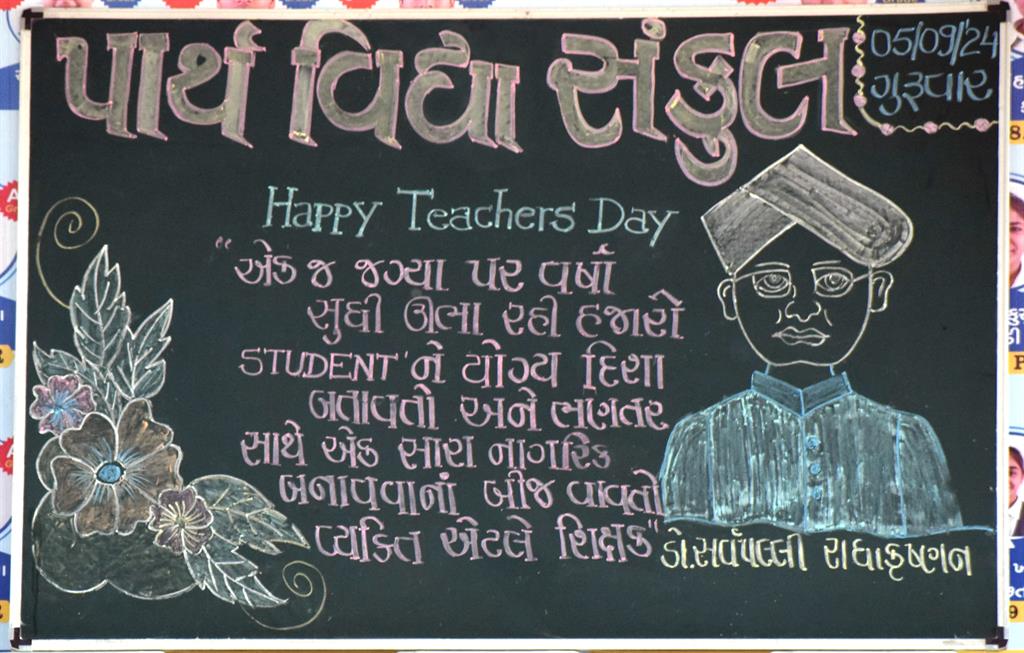 પાર્થ વિદ્યા સંકુલ
05/09/24
ગુરૂવાર
Happy Teachers Day
"એક જ જગ્યા પર વર્ષો
સુધી ઊભા રહી હજારો
STUDENT'ને યોગ્ય દિશા
બતાવતો અને ભણતર
સાથે એક સારા નાગરિક
બનાવવાનાં બીજ વાવતો
વ્યક્તિ એટલે શિક્ષક"
ડો.સર્વપલ્લી રાધાકૃષ્ણન